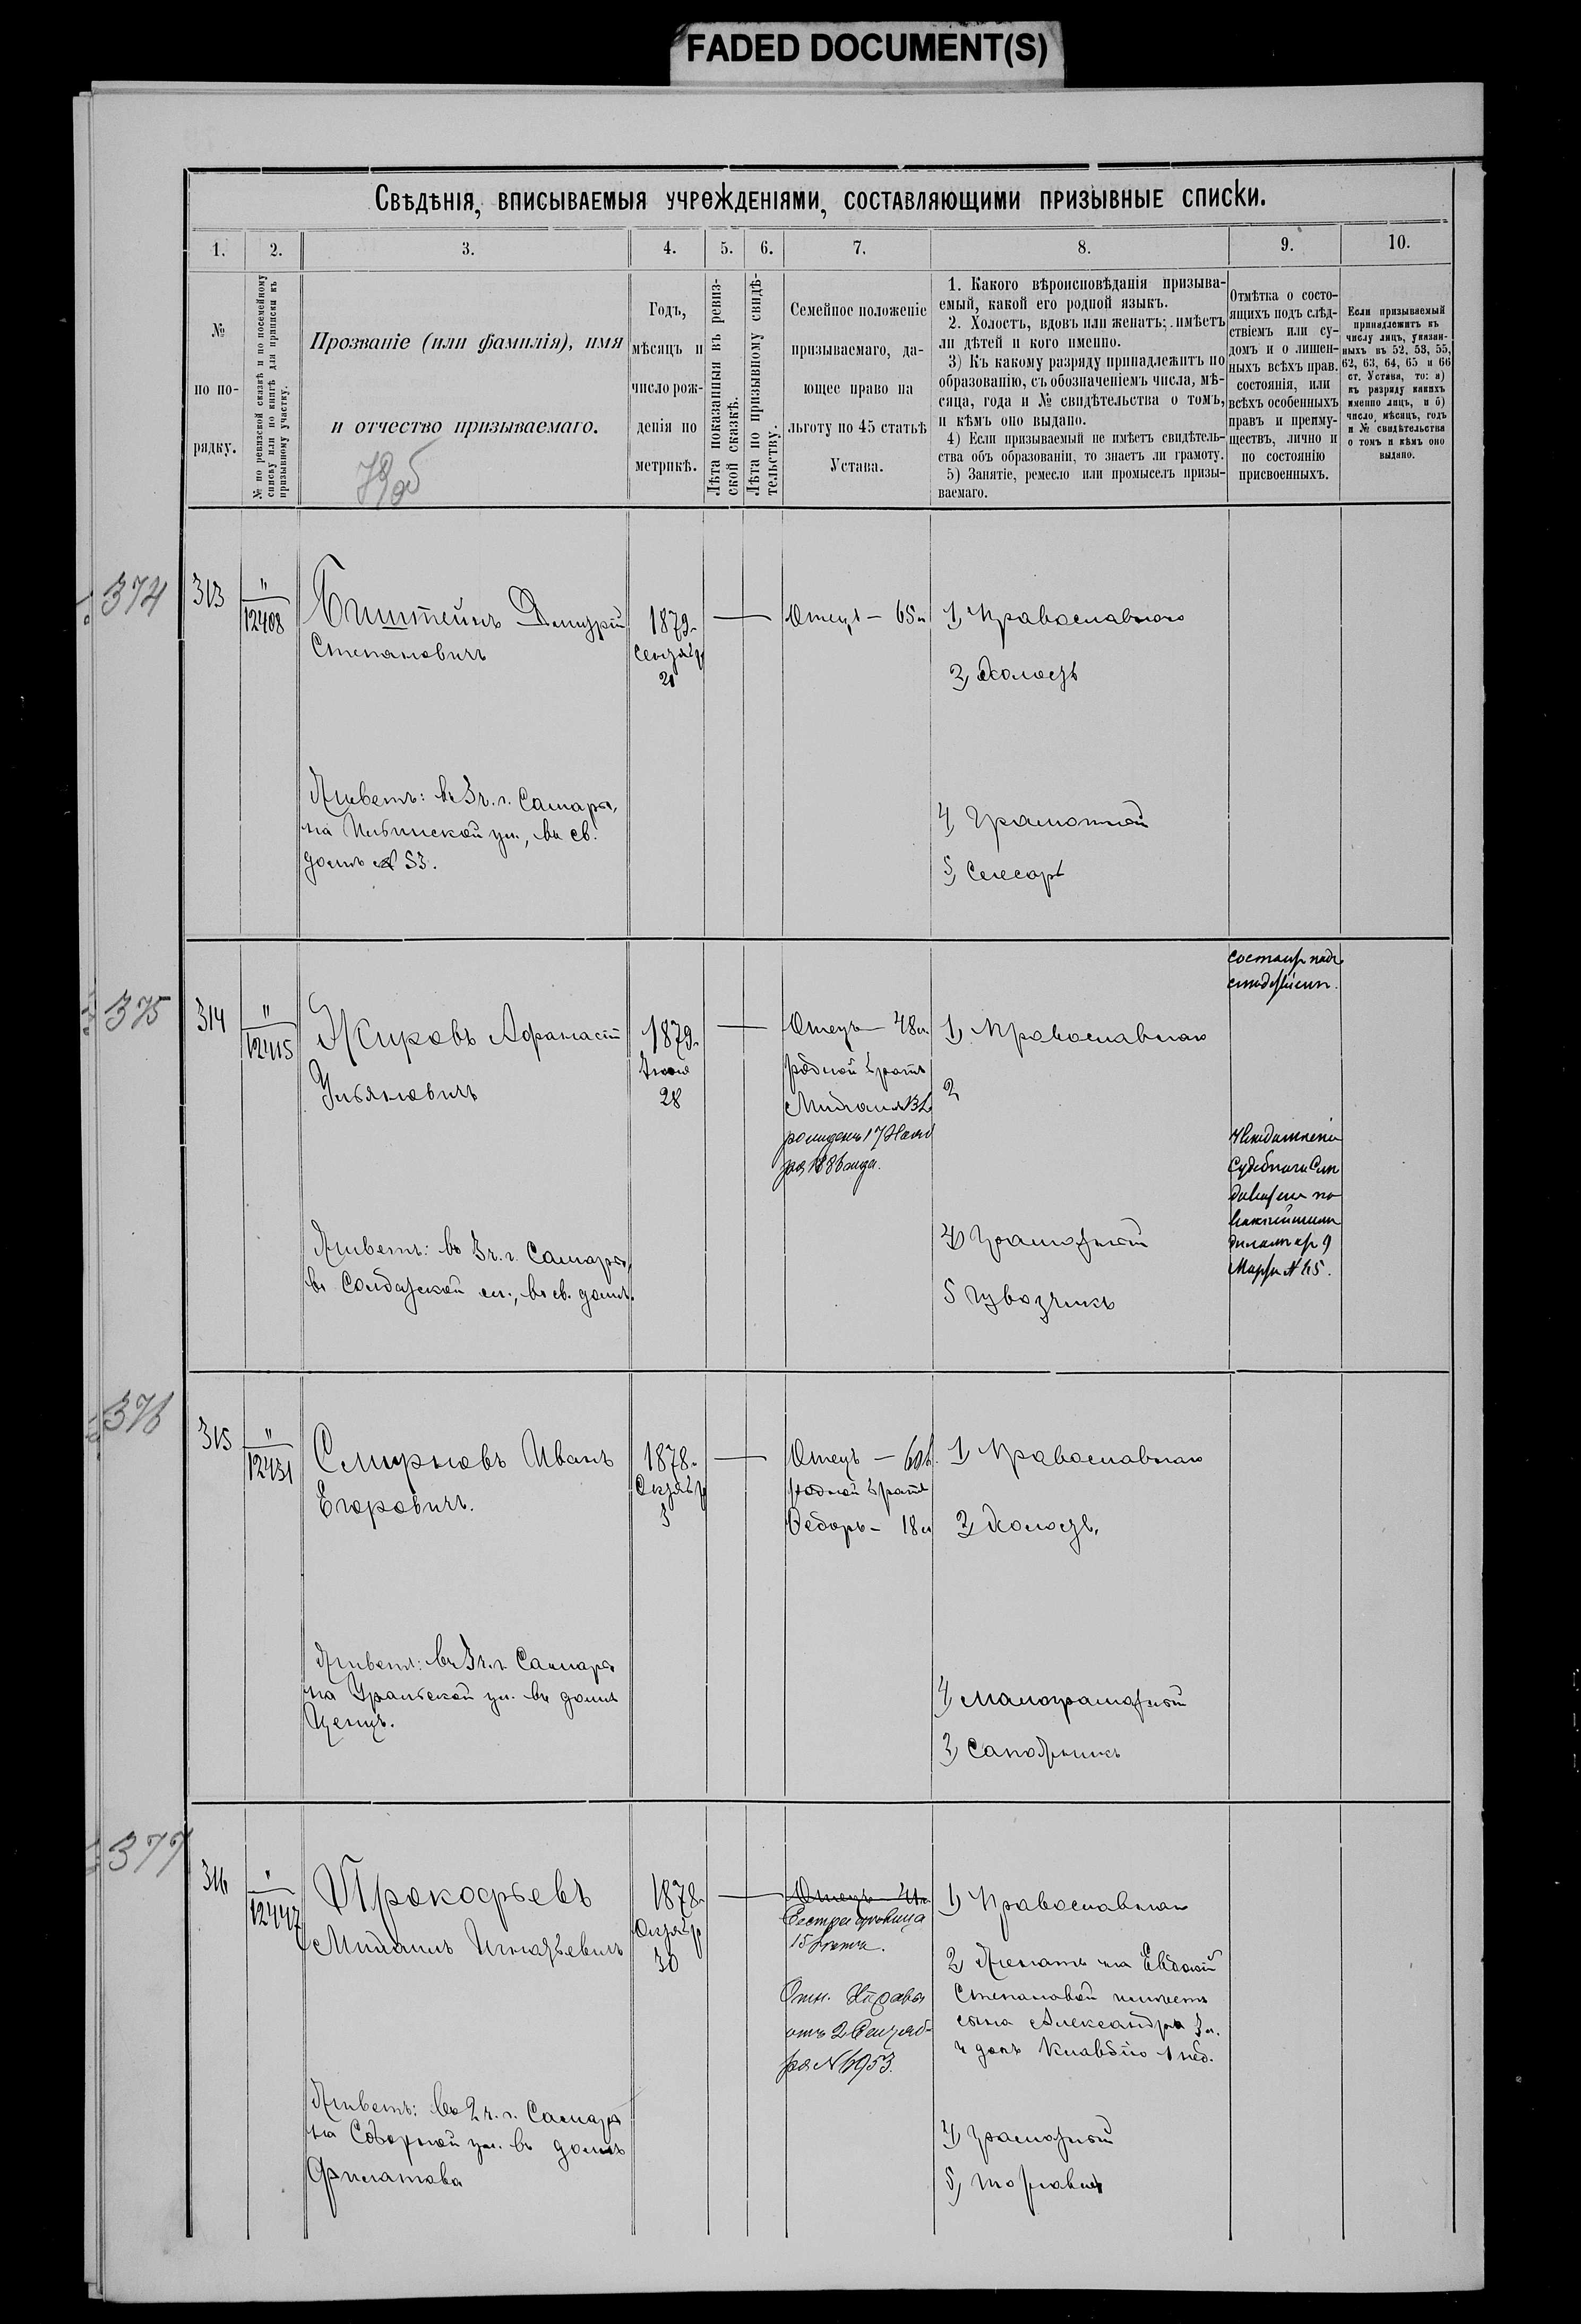 FADED DOCUMENT(S)
Свѣдѣнія, вписываемыя учрежденіями, составляющими призывные списки.
1.
2.
3.
4.
5.
6.
7.
8.
9.
10.
№
по по-
рядку.
№ по ревизской сказкѣ и по посемейному
списку или по книгѣ для приписки къ
призывному участку.
Прозваніе (или фамилія), имя
и отчество призываемаго.
Годъ,
мѣсяцъ и
число рож-
денія по
метрикѣ.
Лѣта показанныя въ ревиз-
ской сказкѣ.
Лѣта по призывному свидѣ-
тельству.
Семейное положеніе
призываемаго, да-
ющее право на
льготу по 45 статьѣ
Устава.
1. Какого вѣроисповѣданія призыва-
емый, какой его родной языкъ.
2. Холостъ, вдовъ или женатъ; имѣетъ
ли дѣтей и кого именно.
3) Къ какому разряду принадлежитъ по
образованію, съ обозначеніемъ числа, мѣ-
сяца, года и № свидѣтельства о томъ,
и кѣмъ оно выдано.
4) Если призываемый не имѣетъ свидѣтель-
ства объ образованіи, то знаетъ ли грамоту.
5) Занятіе, ремесло или промыселъ призы-
ваемаго.
Отмѣтка о состо-
ящихъ подъ слѣд-
ствіемъ или су-
домъ и о лишен-
ныхъ всѣхъ прав.
состоянія, или
всѣхъ особенныхъ
правъ и преиму-
ществъ, лично и
по состоянію
присвоенныхъ.
Если призываемый
принадлежитъ къ
числу лицъ, указан-
ныхъ въ 52, 53, 55,
62, 63, 64, 65 и 66
ст. Устава, то: а)
къ разряду какихъ
именно лицъ, и б)
число, мѣсяцъ, годъ
и № свидѣтельства
о томъ и кѣмъ оно
выдано.
374
313
"
12408
Дмитрій
Степановичъ
1879
Сентябр
21
Отецъ – 65 л
1) Православнаго
2) Холостъ
Живетъ: въ 3 ч. г. Самары,
на Ильинской ул., въ св.
домѣ № 53.
4) Грамотный
5) Слесарь
375
314
"
12415
Жировъ Афанасій
Ульяновичъ
1879
28
Отецъ – 48 л
родной братъ
Михаилъ
рожденъ 17 Нояб
ря 1886 года.
1) Православнаго
2
Живетъ: въ 3 ч. г. Самары,
въ Солдатской сл., въ св. домѣ.
4) Грамотный
5 Извозчикъ
состоитъ подъ
слѣдствіем.
Марта № 415.
376
315
"
12431
Смирновъ Иванъ
Егоровичъ.
1878
Октябр
3
Отецъ –
родной братъ
Ѳедоръ – 18 л
1) Православнаго
2) Холостъ.
Живетъ: въ 3 ч. г. Самары
на Уральской ул. въ домѣ
4) Малограмотный
5) Сапожникъ
377
316
"
12447
Прокофьевъ
Михаилъ Игнатьевичъ
1878
Октябр
30
Отецъ
Сестра
Отн. Управы
отъ 2 Сентяб-
ря № 6953.
1) Православнаго
2) Женатъ на Евдокіи
Степановой имѣетъ
сына Александра 3 л.
и дочь Клавдію 1 нед.
Живетъ: во 2 ч. г. Самары
на Соборной ул. въ домѣ
Филатова
4) Грамотный
5) Торговля